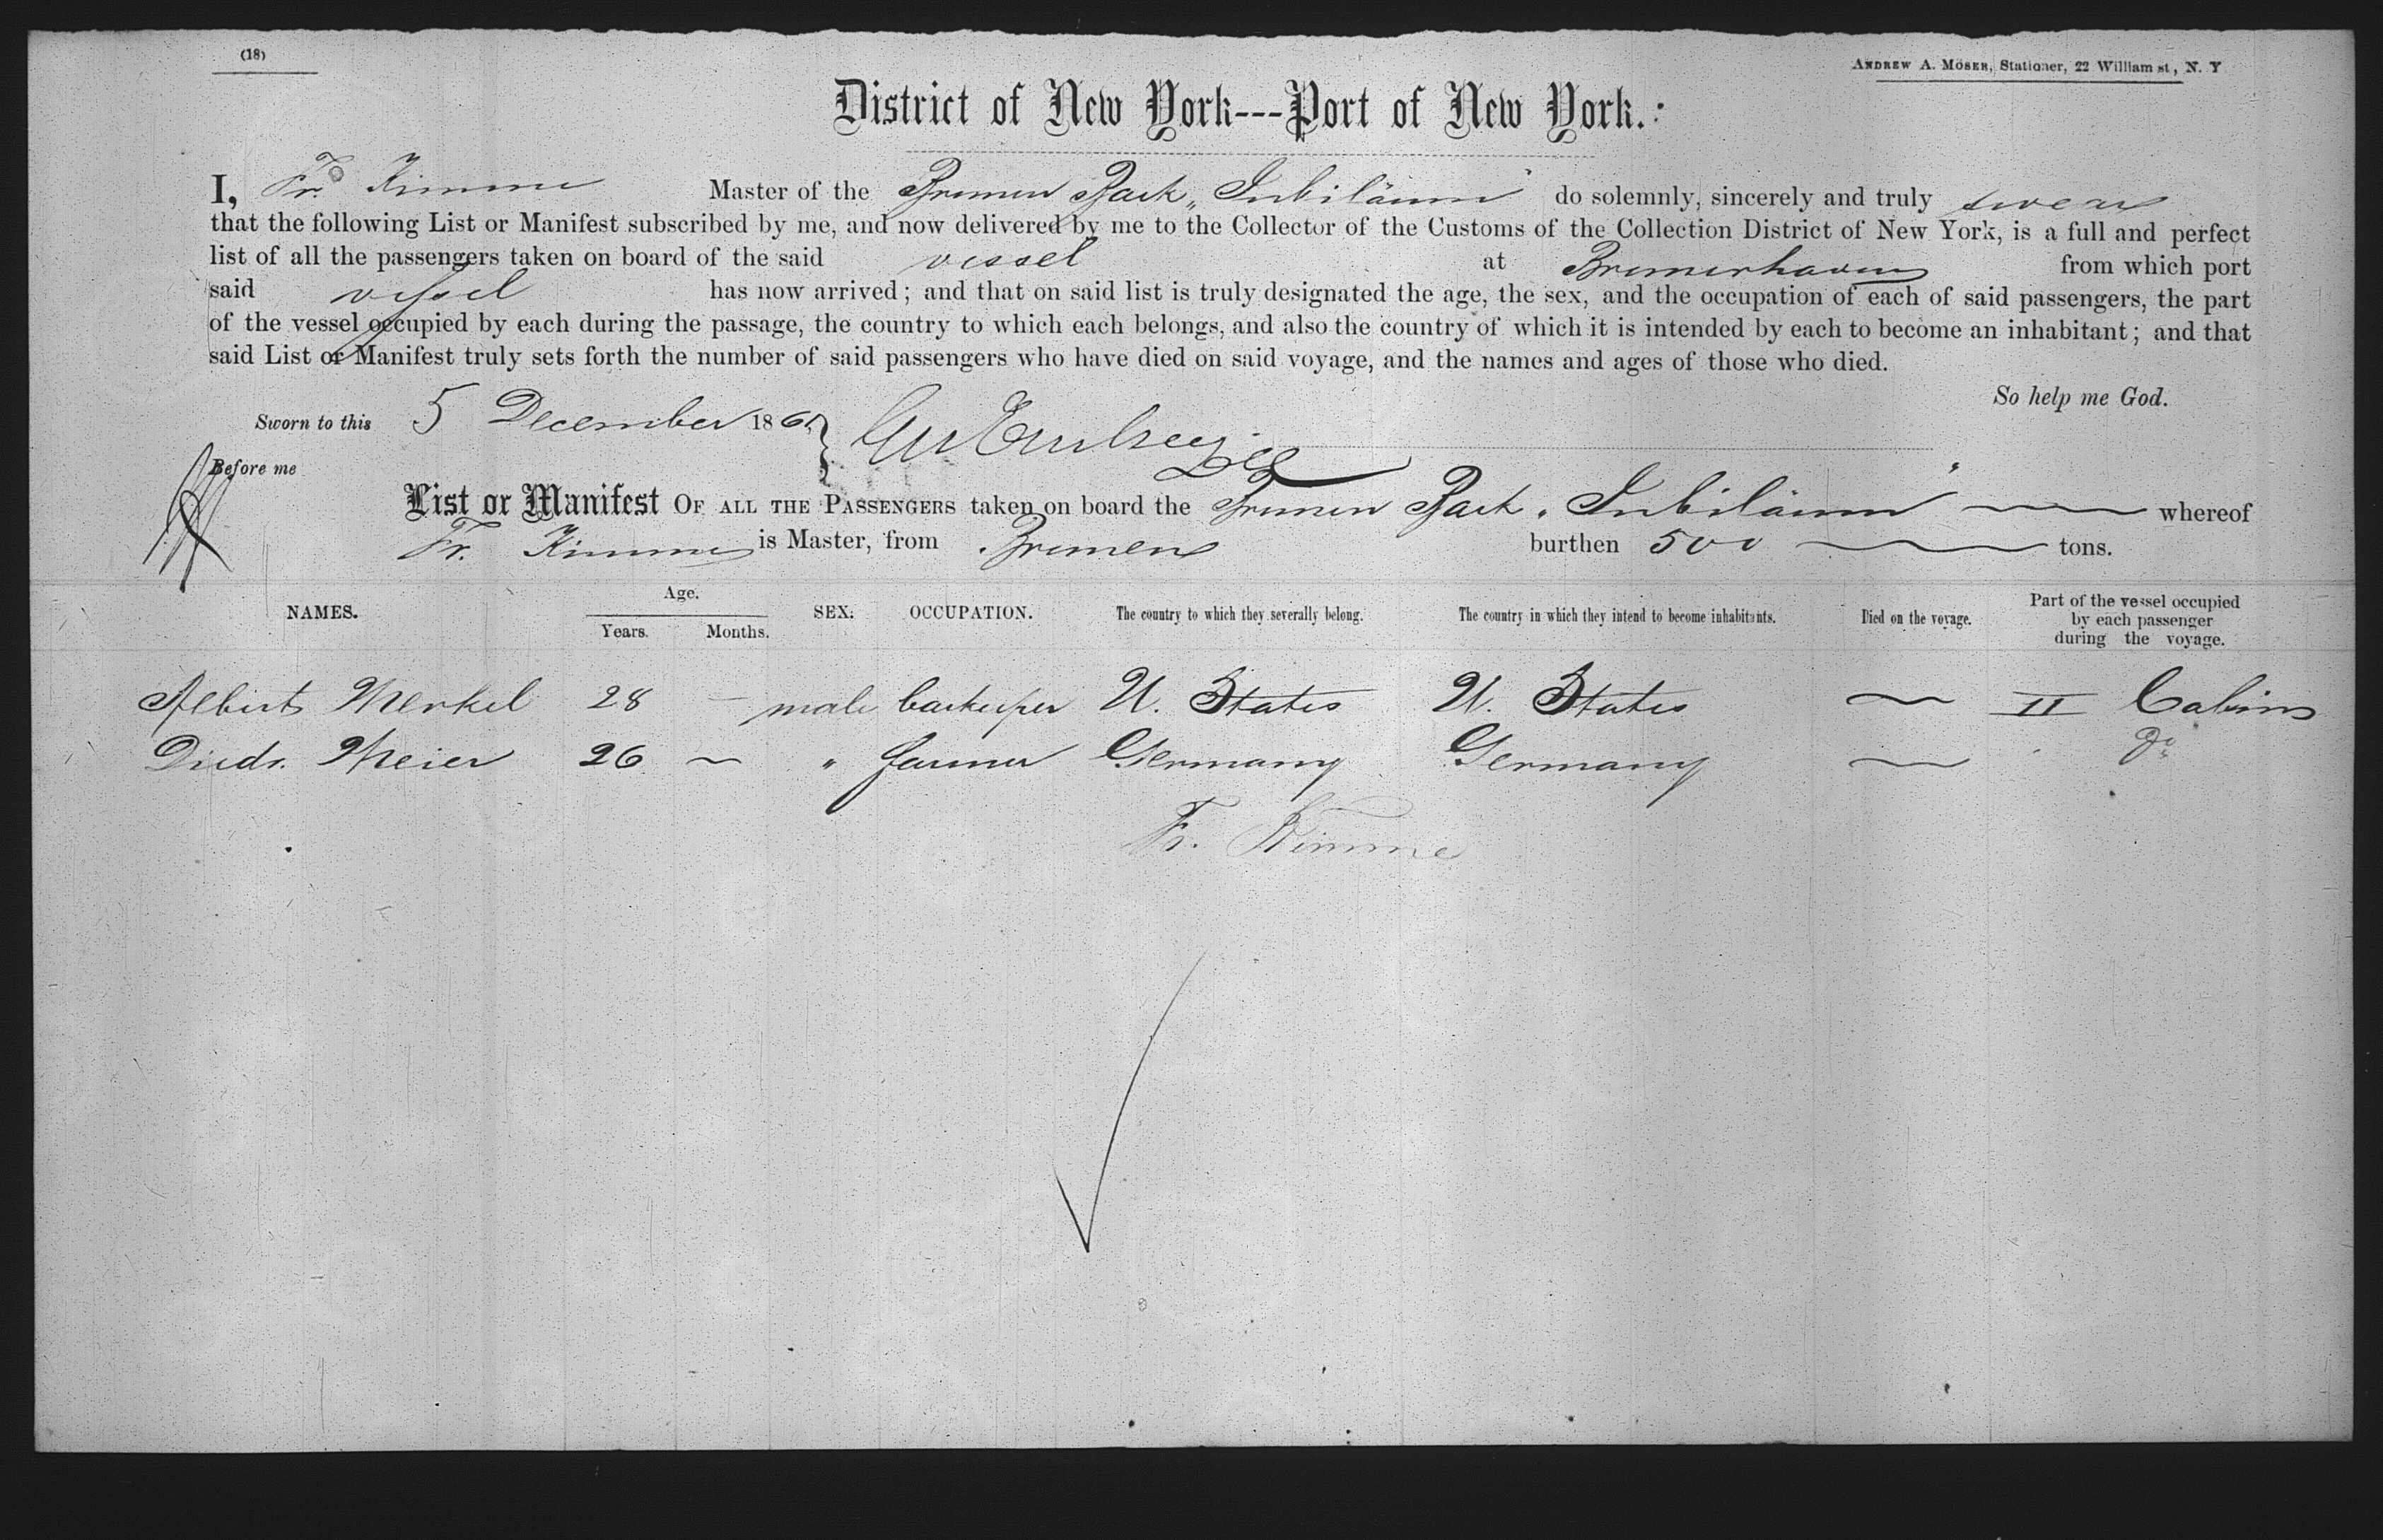 (18)
ANDREW A. MÖSER, Stationer, 22 William st, N. Y
District of New York---Port of New York.
I, Fr. Kimme Master of the Bremen Bark "Jubiläum" do solemnly, sincerely and truly swear
that the following List or Manifest subscribed by me, and now delivered by me to the Collector of the Customs of the Collection District of New York, is a full and perfect
list of all the passengers taken on board of the said vessel at Bremerhaven from which port
said vessel has now arrived; and that on said list is truly designated the age, the sex, and the occupation of each of said passengers, the part
of the vessel occupied by each during the passage, the country to which each belongs, and also the country of which it is intended by each to become an inhabitant; and that
said List or Manifest truly sets forth the number of said passengers who have died on said voyage, and the names and ages of those who died.
So help me God.
Sworn to this 5 December 186
Before me
List or Manifest OF ALL THE PASSENGERS taken on board the Bremen Bark "Jubiläum" whereof
Fr. Kimme is Master, from Bremen burthen 500 tons.
NAMES. Age. Years. Months. SEX. OCCUPATION. The country to which they severally belong. The country in which they intend to become inhabitants. Died on the voyage. Part of the vessel occupied by each passenger during the voyage.
Albert Merkel 28 — male barkeeper U. States U. States — II Cabin
Diedr. Meier 26 — " farmer Germany Germany — Do
Fr. Kimme